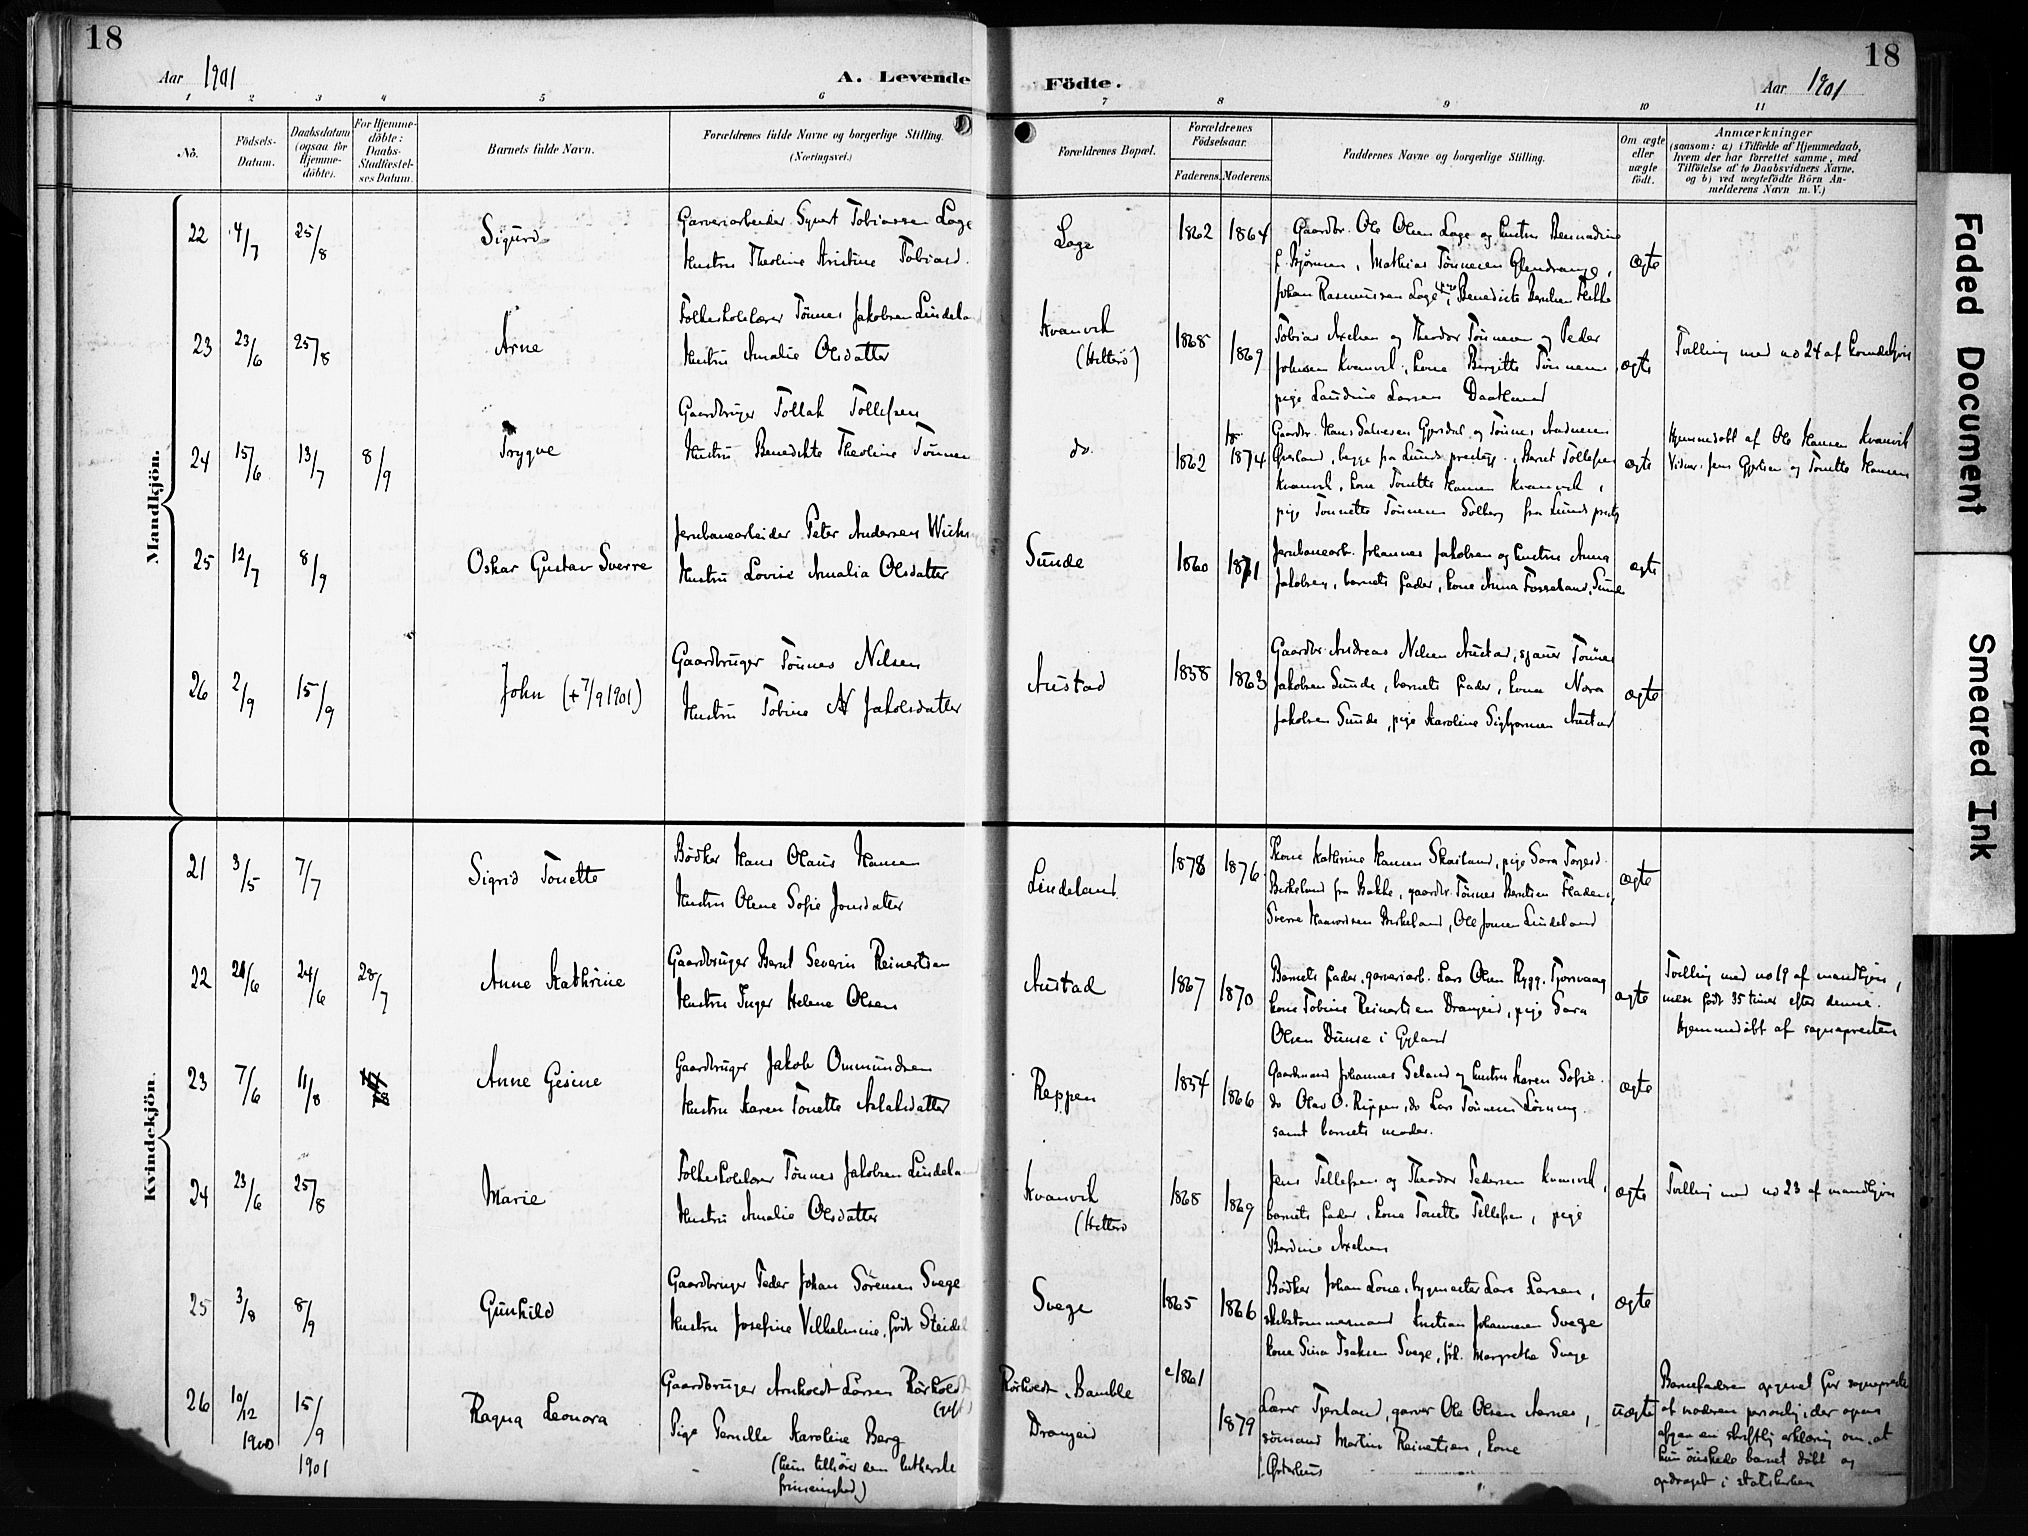 18
Aar 1901
A. Levende
1 2 3 4 5 6
Nô.
Födsels-
Datum.
Daabsdatum
(ogsaa for
Hjemme-
döbte).
For Hjemme-
döbte:
Daabs-
Stadfæstel-
ses Datum.
Barnets fulde Navn.
Forældrenes fulde Navne og borgerlige Stilling.
(Næringsvei.)
Mandkjön.
22 4/7 25/8 Sigurd
Garveriarbeider Syvert Tobiassen Loge
Hustru Theoline Kristine Tobiasd.
23 23/6 25/8 Arne
Folkeskolelærer Tönnes Jakobsen Lindeland
Hustru Amalie Olsdatter
24 15/6 13/7 8/9 Trygve
Gaardbruger Tollak Tollefsen
Hustru Benedikte Theoline Tönnesen
25 12/7 8/9 Oskar Gustav Sverre
Jernbanearbeider Peter Andersen
Hustru Lovise Amalia Olsdatter
26 2/9 15/9 John (+ 7/9 1901)
Gaardbruger Tönnes Nilsen
Hustru Tobine Jakobsdatter
Kvindekjön.
21 3/5 7/7 Sigrid Tonette
Bödker Hans Olaus Hansen
Hustru Olene Sofie Jonsdatter
22 /6 24/6 28/7 Anne Kathrine
Gaardbruger Bernt Severin Reinertsen
Hustru Inger Helene Olsen
23 7/6 11/8 Anne Gesine
Gaardbruger Jakob Ommundsen
Hustru Karen Tonette Aslaksdatter
24 23/6 25/8 Marie
Folkeskolelærer Tönnes Jakobsen Lindeland
Hustru Amalie Olsdatter
25 3/8 8/9 Gunhild
Gaardbruger Peder Johan Sörensen Svege
Hustru Josefine Vilhelmine, födt
26 10/12 1900 15/9 1901 Ragna Leonora
Gaardbruger Larsen
Pige Pernille Karoline Berg
(hun tilhörer den lutherske
frimenighed)
18
Födte.
Aar 1901
7 8 9 10 11
Forældrenes Bopæl.
Forældrenes
Födselsaar.
Faderens. Moderens.
Faddernes Navne og borgerlige Stilling.
Om ægte
eller
uægte
födt.
Anmærkninger
(saasom: a) i Tilfælde af Hjemmedaab,
hvem der har forrettet samme, med
Tilföielse af to Daabsvidners Navne.
og b) ved uægtefödte Börn An-
melderens Navn m. V.)
Loge 1862 1864
Gaardbr. Ole Olsen Loge og hustru Bernadine
f. Björnsen, Mathias Tönnesen
Johan Rasmussen Loge, Benedicte Berntsen Flikke
ægte
Kvanvik
(Hitterö)
1868 1869
Tobias Axelsen og Theodor Tönnesen og Peder
Johnsen Kvanvik, kone Birgitte Tönnesen
pige Laudine Larsen
ægte
Tvilling med no 24 af kvindekjön
do. 1862 1874
Gaardbr. Hans Salvesen og Tönnes
begge fra Lunds prestegj., Bernt Tollefsen
Kvanvik, kone Tonette Hansen Kvanvik,
pige Tonnette Tönnesen Solberg fra Lunds prestg
ægte
Hjemmedöbt af Ole Hansen Kvanvik
Vidner: Jens og Tonette Hansen
Sunde 1860 1871
Jernbanearb. Johannes Jakobsen og hustru Anna
Jakobsen, barnets fader, kone Anna Fosseland, Sunde
ægte
Austad 1858 1863
Gaardbr. Andreas Nilsen Austad, Tönnes
Jakobsen Sunde, barnets fader, kone Nora
Jakobsen Sunde, pige Karoline Sigbjörnsen Austad
ægte
Lindeland 1878 1876
Kone Kathrine Hansen Skailand, pige Sara
Birkeland fra Bakke, gaardbr. Tönnes Berntsen
Sverre Birkeland, Ole Jonsen Lindeland
ægte
Austad 1867 1870
Barnets fader, garveriarb. Lars Olsen Rygg, Tjorsvaag
kone Tobine Reinertsen Drangeid, pige Sara
Olsen i Gyland
ægte
Tvilling med no 19 af mandkjön,
men födt 35 timer efter denne.
Hjemmedöbt af sognepresten
Reppen 1854 1866
Gaardmand Johannes Seland og hustru Karen Sofie
do Olav O. Reppen, do Lars Tönnesen
samt barnets moder.
ægte
Kvanvik
(Hitterö
1868 1869
Jens Tellefsen og Theodor Pedersen Kvanvik,
barnets fader, kone Tonette Tellefsen, pige
Berdine Axelsen
ægte
Tvilling med no 23 af mandkjön
Svege 1865 1866
Bödker Johan Lone, bygmester Lars Larsen,
skibstömmermand Kristian Johannesen Svege
kone Sina Isaksen Svege, frk. Margrethe Svege
ægte
Bamble
Drangeid
1861
1879
Lærer Fjersland, garver Ole Olsen Aarnes,
sömand Martin Reinertsen, kone
uægte
Barnefaderen opgivet for sognepresten
af moderen personlig, der ogsaa
afgav en skriftlig erklæring om, at
hun önskede barnet döbt og
opdraget i statskirken
Faded Document
Smeared Ink